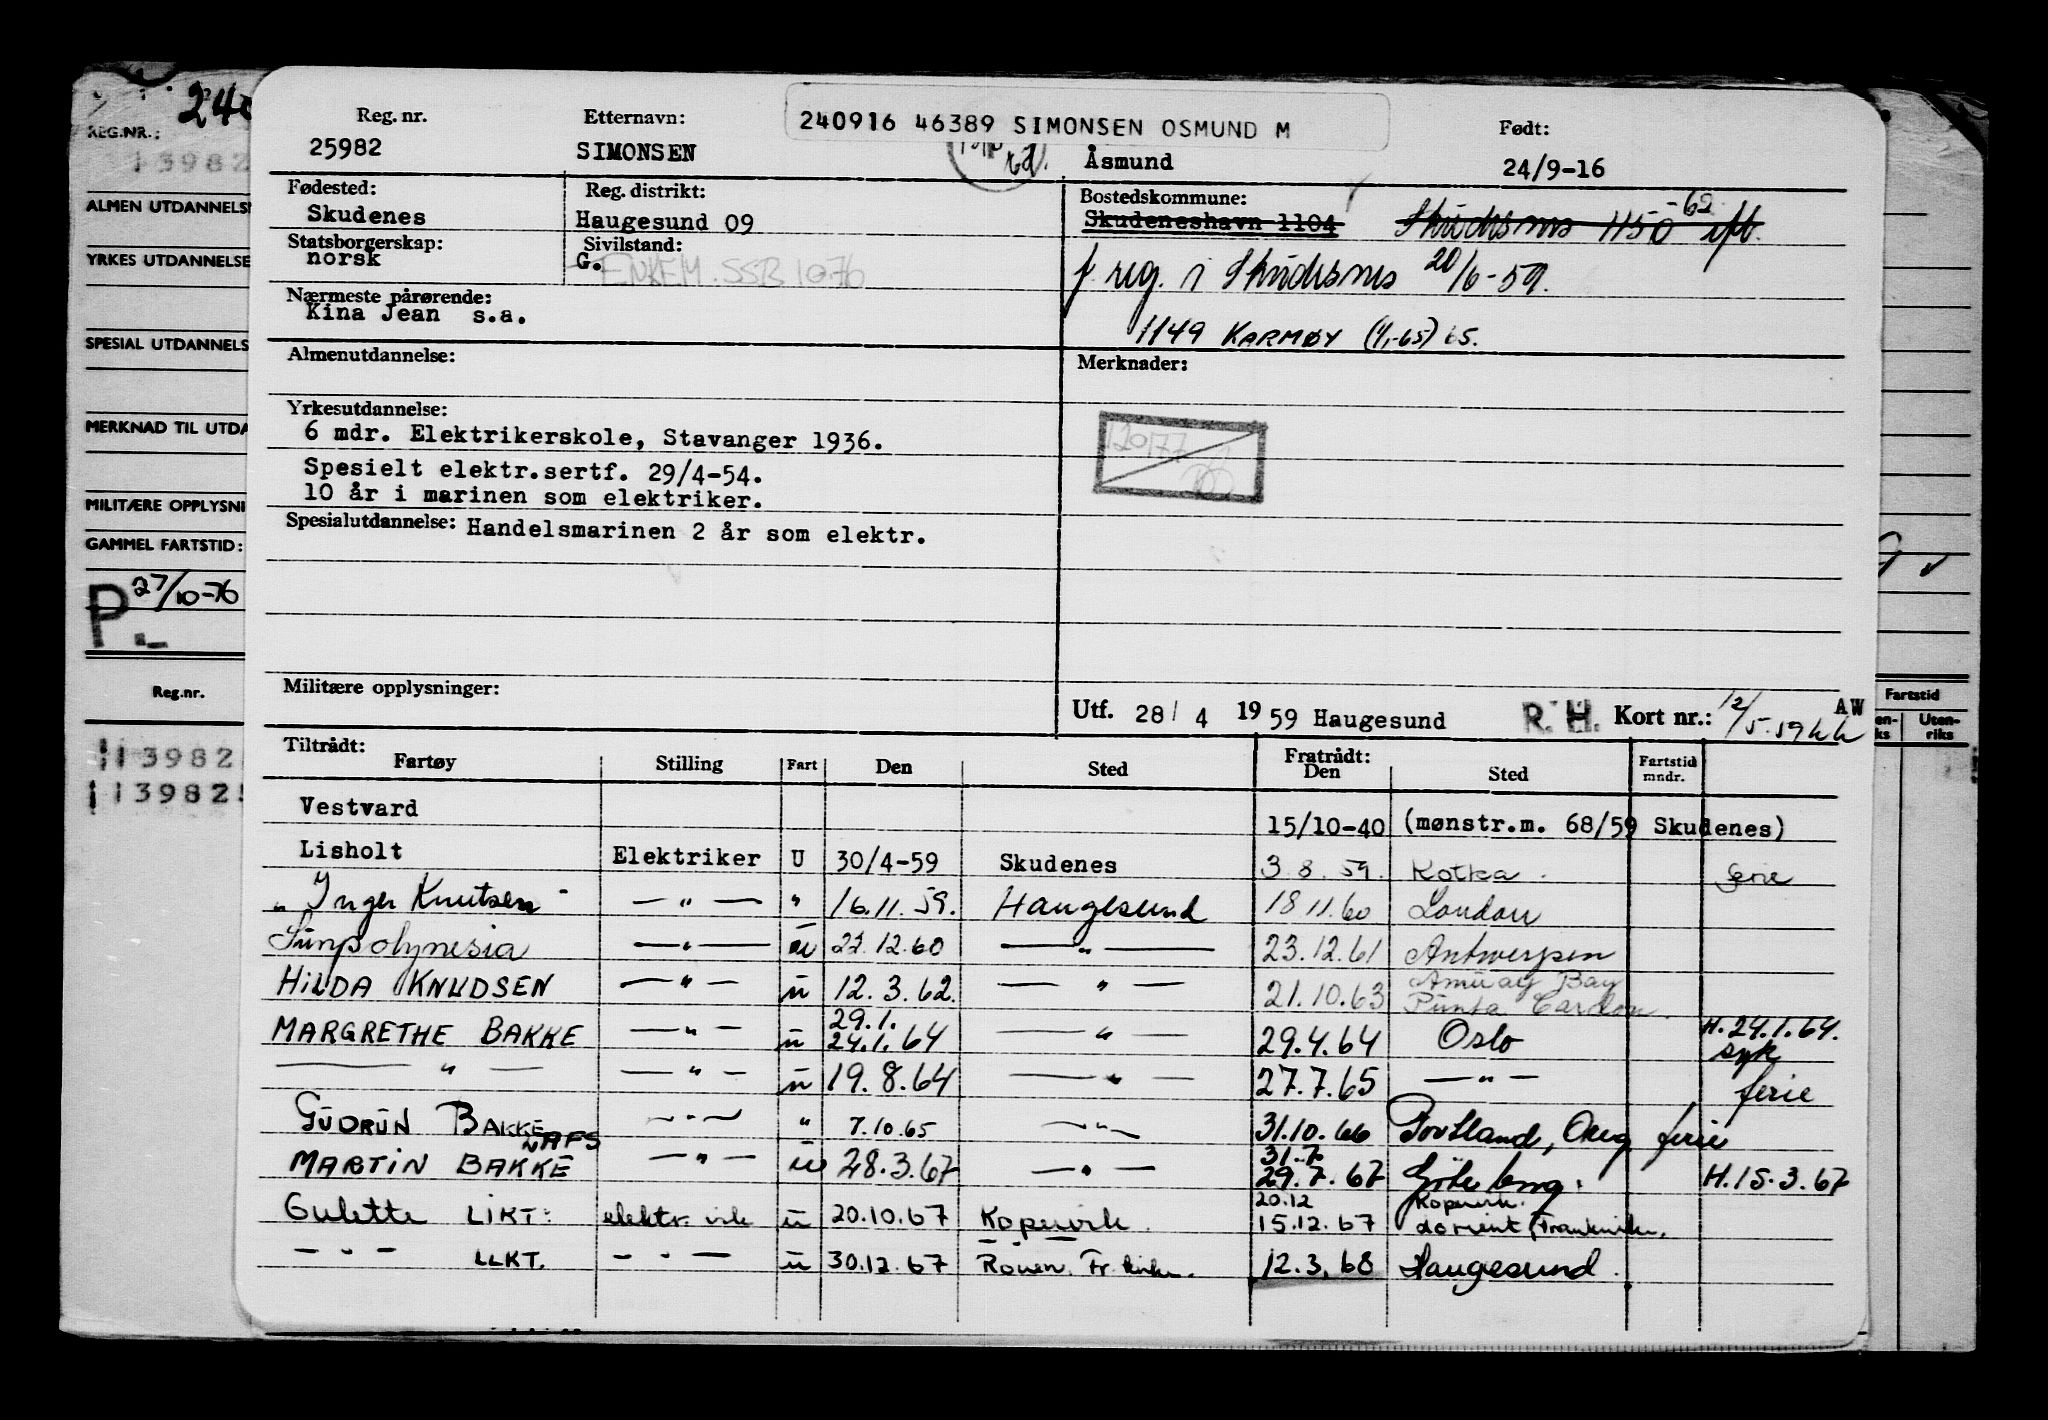 240916 46389 SIMONSEN OSMUND M
Reg. nr. Etternavn: Født:
25982 SIMONSEN Åsmund 24/9-16
Fødested: Reg. distrikt: Bostedskommune:
Skudenes Haugesund 09 Skudeneshavn 1104 Skudesnes 1150 -62
Statsborgerskap: Sivilstand:
norsk G. ENKEM. SSB 1076 f. reg. i Skudesnes 20/6-59.
Nærmeste pårørende:
Kina Jean s.a. 1149 KARMØY (1/1-65) 65.
Almenutdannelse: Merknader:
Yrkesutdannelse:
6 mdr. Elektrikerskole, Stavanger 1936.
Spesielt elektr.sertf. 29/4-54.
10 år i marinen som elektriker.
Spesialutdannelse: Handelsmarinen 2 år som elektr.
Militære opplysninger:
Utf. 28/ 4 1959 Haugesund R. H. Kort nr.: AW
12/5-59
Tiltrådt: Fratrådt:
Fartøy Stilling Fart Den Sted Den Sted Fartstid mndr.
Vestvard 15/10-40 (mønstr.m. 68/59 Skudenes)
Lisholt Elektriker U 30/4-59 Skudenes 3.8.59. Kotka. ferie
"Inger Knutsen" — " — " 16.11.59. Haugesund 18.11.60 London
Sunpolynesia — " — u 22.12.60 — " — 23.12.61 Antwerpen
HILDA KNUDSEN — " — u 12.3.62. — " — 21.10.63 Amuay Bay
Punta Cardon.
29.1.
MARGRETHE BAKKE — " — u 24.1.64 — " — 29.4.64 Oslo H. 24.1.64.
syk
— " — — " — u 19.8.64 — " — 27.7.65 — " — ferie
GUDRUN BAKKE — " — " 7.10.65 — " — 31.10.66 Portland, Oreg. ferie
LAFS 31.7.
MARTIN BAKKE — " — u 28.3.67 — " — 29.7.67 Göteborg. H. 15.3.67
20.12 Kopervik.
Gulette LIKT: u 20.10.67 Kopervik. 15.12.67 Lorient, Frankrike.
— " — LLKT. — " — u 30.12.67 Rouen. 12.3.68 Haugesund.
240
REG.NR.:
13982
ALMEN UTDANNELS
YRKES UTDANNELSE
SPESIAL UTDANNELS
MERKNAD TIL UTDA
MILITÆRE OPPLYSNI
GAMMEL FARTSTID:
P.- 27/10-76
Reg.nr.
13982
13982
Fartstid
en-
ks
Uten-
riks